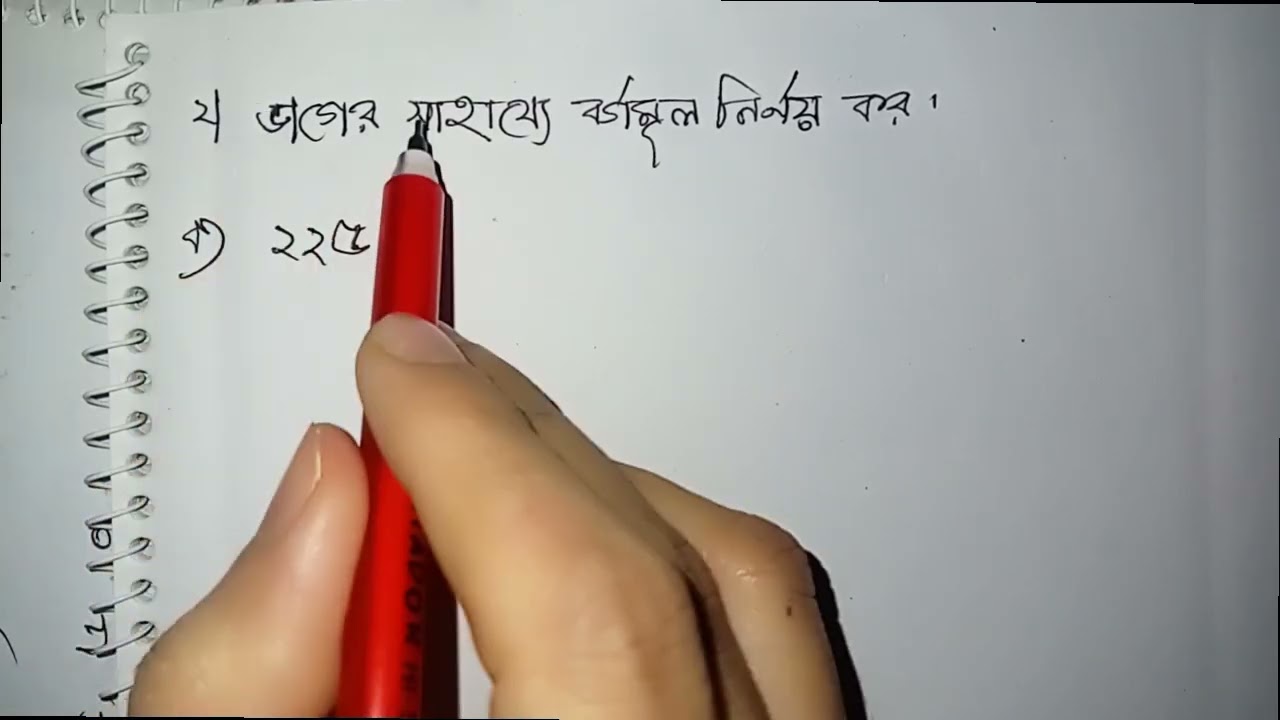 ২। ভাগের সাহায্যে বর্গমূল নির্নয় কর।
ক) ২২৫